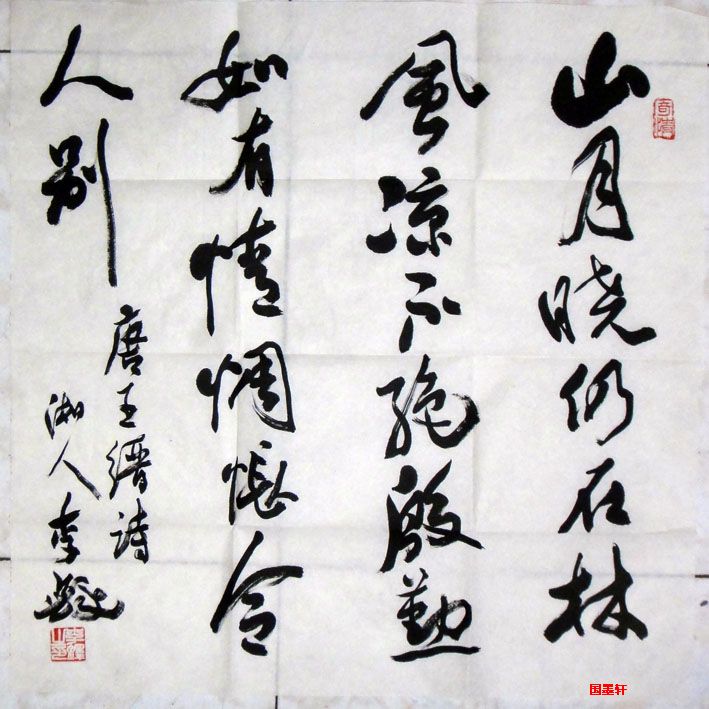 山月晓仍在林
風凉不絶殷勤
如有情惆悵令
人别
唐王縉诗
湘人李
国墨轩